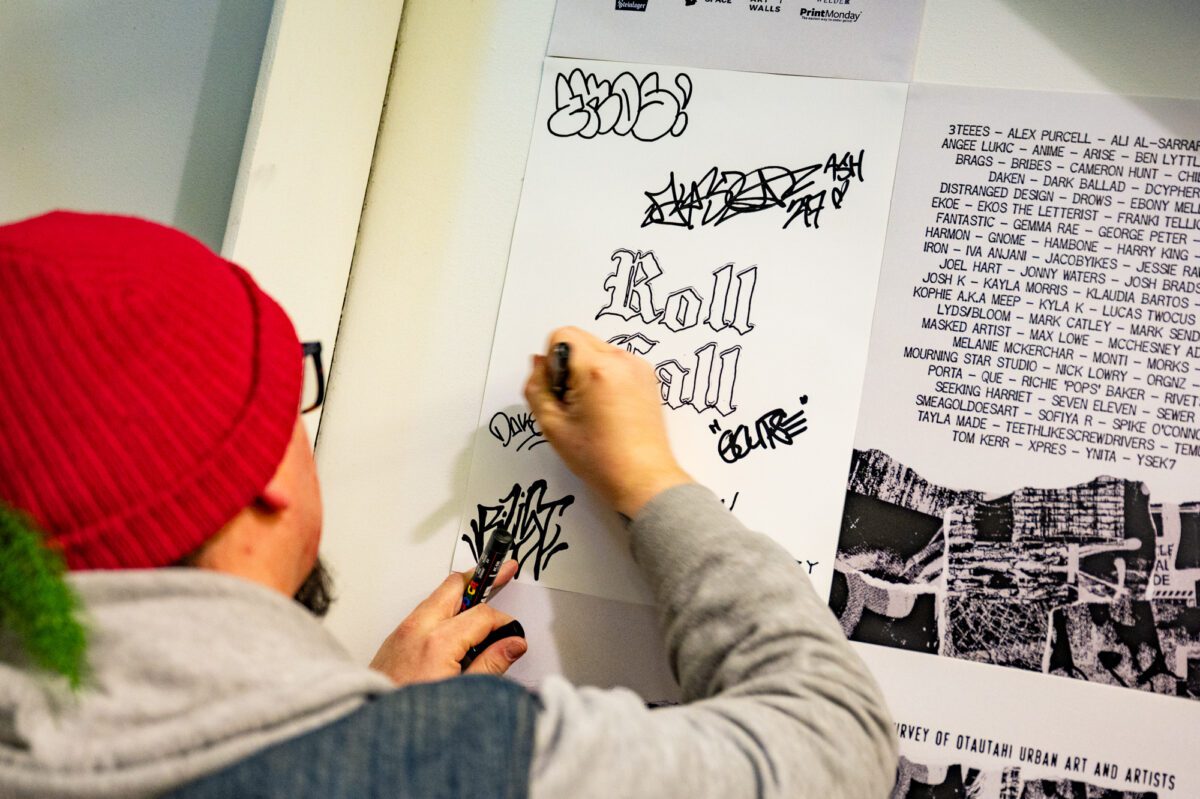 SPACE
ART
WALLS
PrintMonday
EKOS!
ASH
Roll
Call
3TEEES – ALEX PURCELL – ALI AL-SARRAF
ANGEE LUKIC – ANIME – ARISE – BEN LYTTL
BRAGS – BRIBES – CAMERON HUNT – CHI
DAKEN – DARK BALLAD – DCYPHER
DISTRANGED DESIGN – DROWS – EBONY MEL
EKOE – EKOS THE LETTERIST – FRANKI TELLIC
FANTASTIC – GEMMA RAE – GEORGE PETER
HARMON – GNOME – HAMBONE – HARRY KING –
IRON – IVA ANJANI – JACOBYIKES – JESSIE RA
JOEL HART – JONNY WATERS – JOSH BRADS
JOSH K – KAYLA MORRIS – KLAUDIA BARTOS
KOPHIE A.K.A MEEP – KYLA K – LUCAS TWOCUS
LYDS/BLOOM – MARK CATLEY – MARK SEND
MASKED ARTIST – MAX LOWE – MCCHESNEY AL
MELANIE MCKERCHAR – MONTI – MORKS –
MOURNING STAR STUDIO – NICK LOWRY – ORGNZ –
PORTA – QUE – RICHIE 'POPS' BAKER – RIVET
SEEKING HARRIET – SEVEN ELEVEN – SEWER
SMEAGOLDOESART – SOFIYA R – SPIKE O'CONN
TAYLA MADE – TEETHLIKESCREWDRIVERS – TEM
TOM KERR – XPRES – YNITA – YSEK7
URVEY OF OTAUTAHI URBAN ART AND ARTISTS